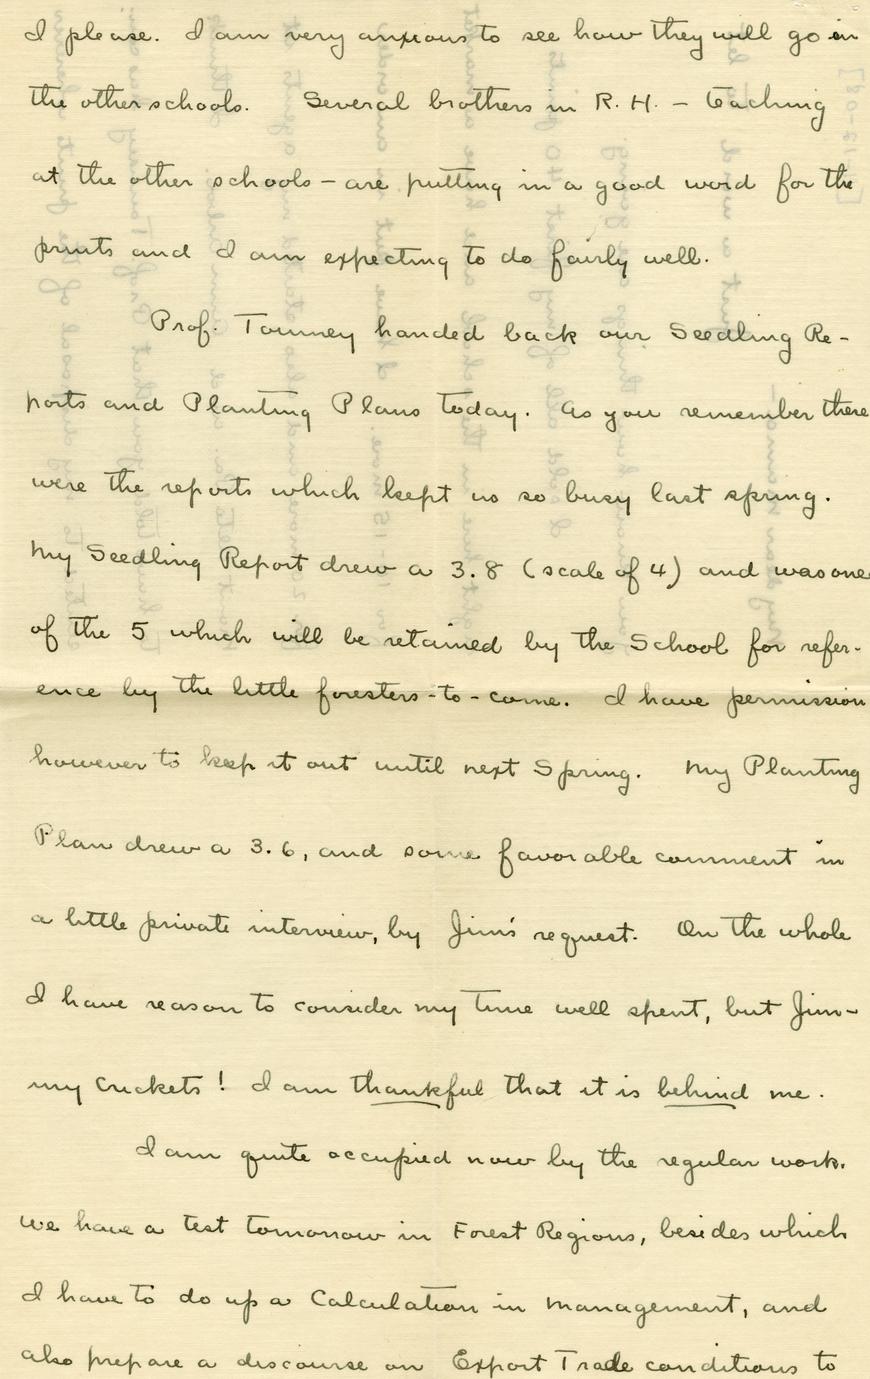 I please. I am very anxious to see how they will go in
the other schools. Several brothers in R. H. – teaching
at the other schools – are putting in a good word for the
prints and I am expecting to do fairly well.
Prof. Toumey handed back our Seedling Re-
ports and Planting Plans today. As you remember there
were the reports which kept us so busy last spring.
My Seedling Report drew a 3.8 (scale of 4) and was one
of the 5 which will be retained by the School for refer-
ence by the little foresters-to-come. I have permission
however to keep it out until next Spring. My Planting
Plan drew a 3.6, and some favorable comment in
a little private interview, by Jim's request. On the whole
I have reason to consider my time well spent, but Jim-
my Crickets! I am thankful that it is behind me.
I am quite occupied now by the regular work.
We have a test tomorrow in Forest Regions, besides which
I have to do up a Calculation in Management, and
also prepare a discourse on Export Trade conditions to